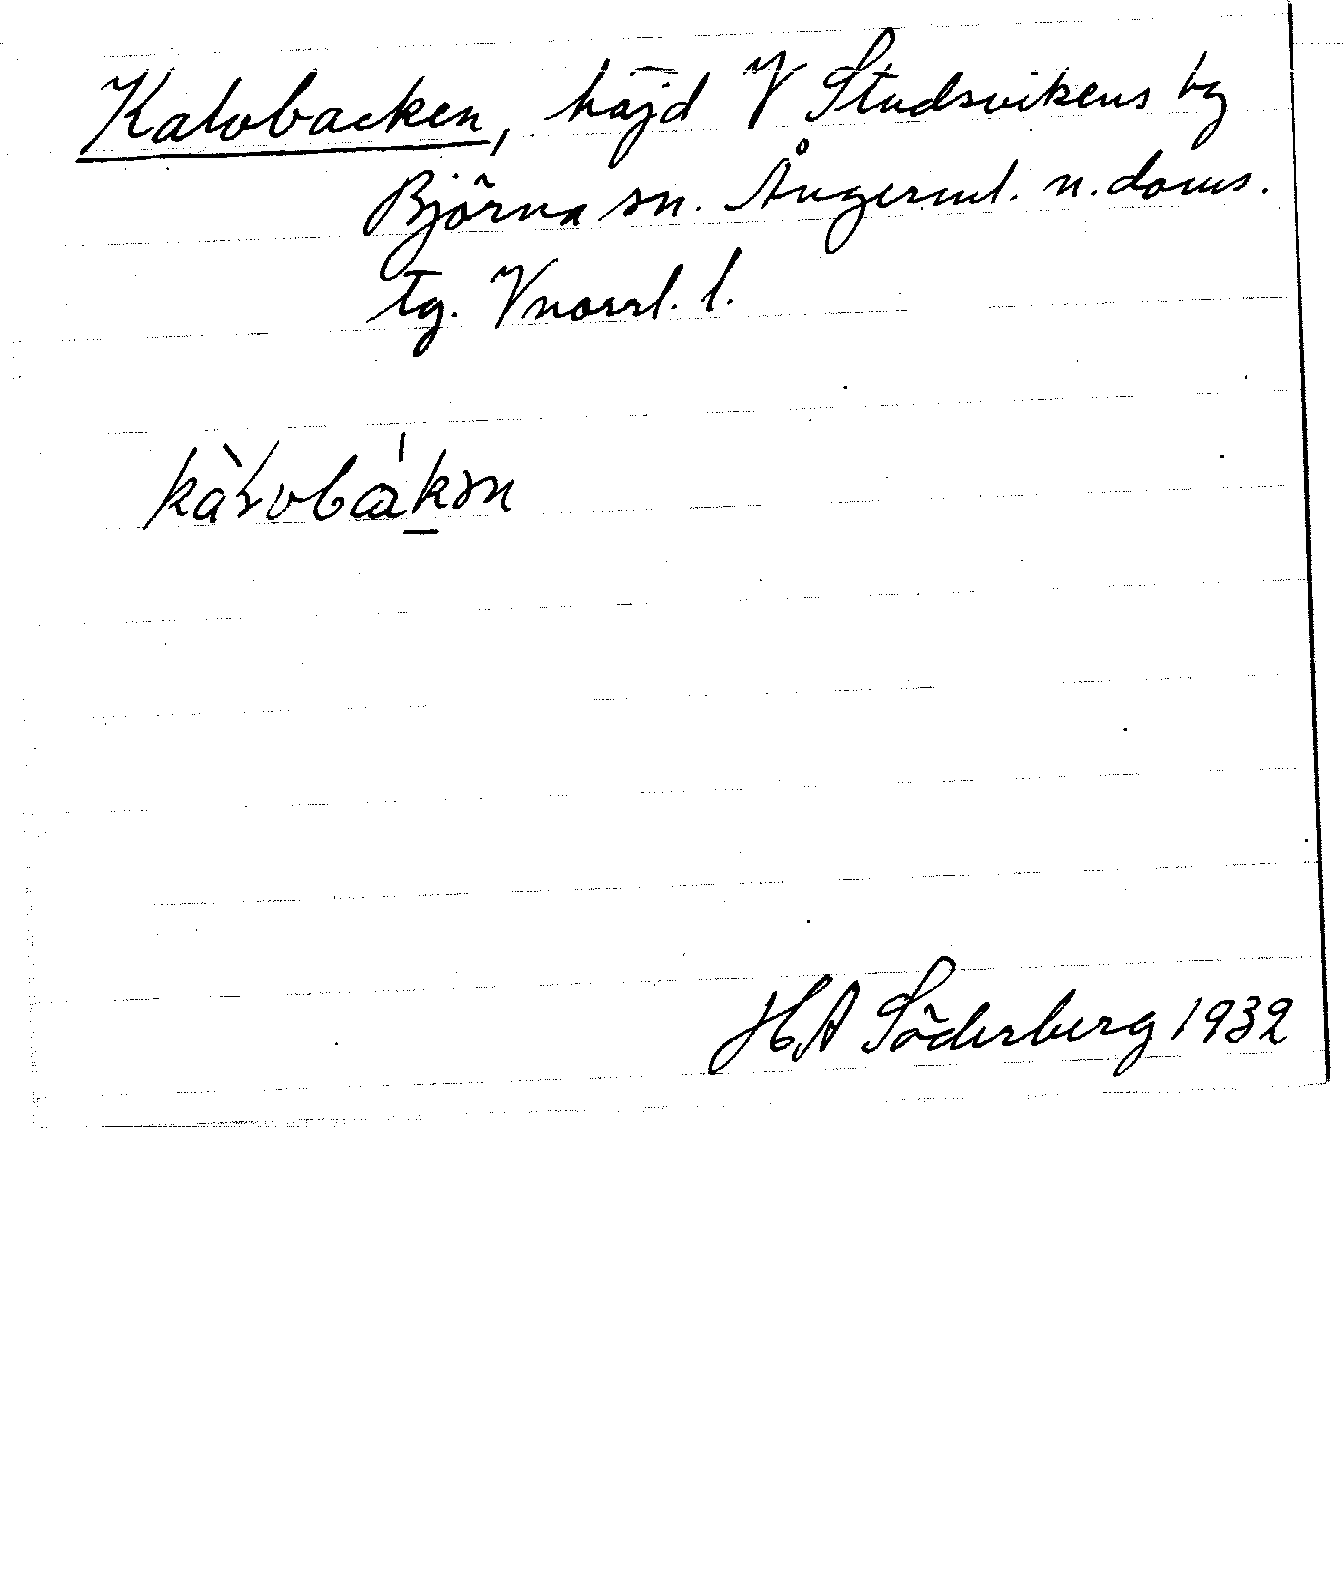 Kalvbacken, höjd V Studsvikens by
Björna sn. Ångerml. n. doms.
tg. Vnorrl. l.
HA Söderberg 1932